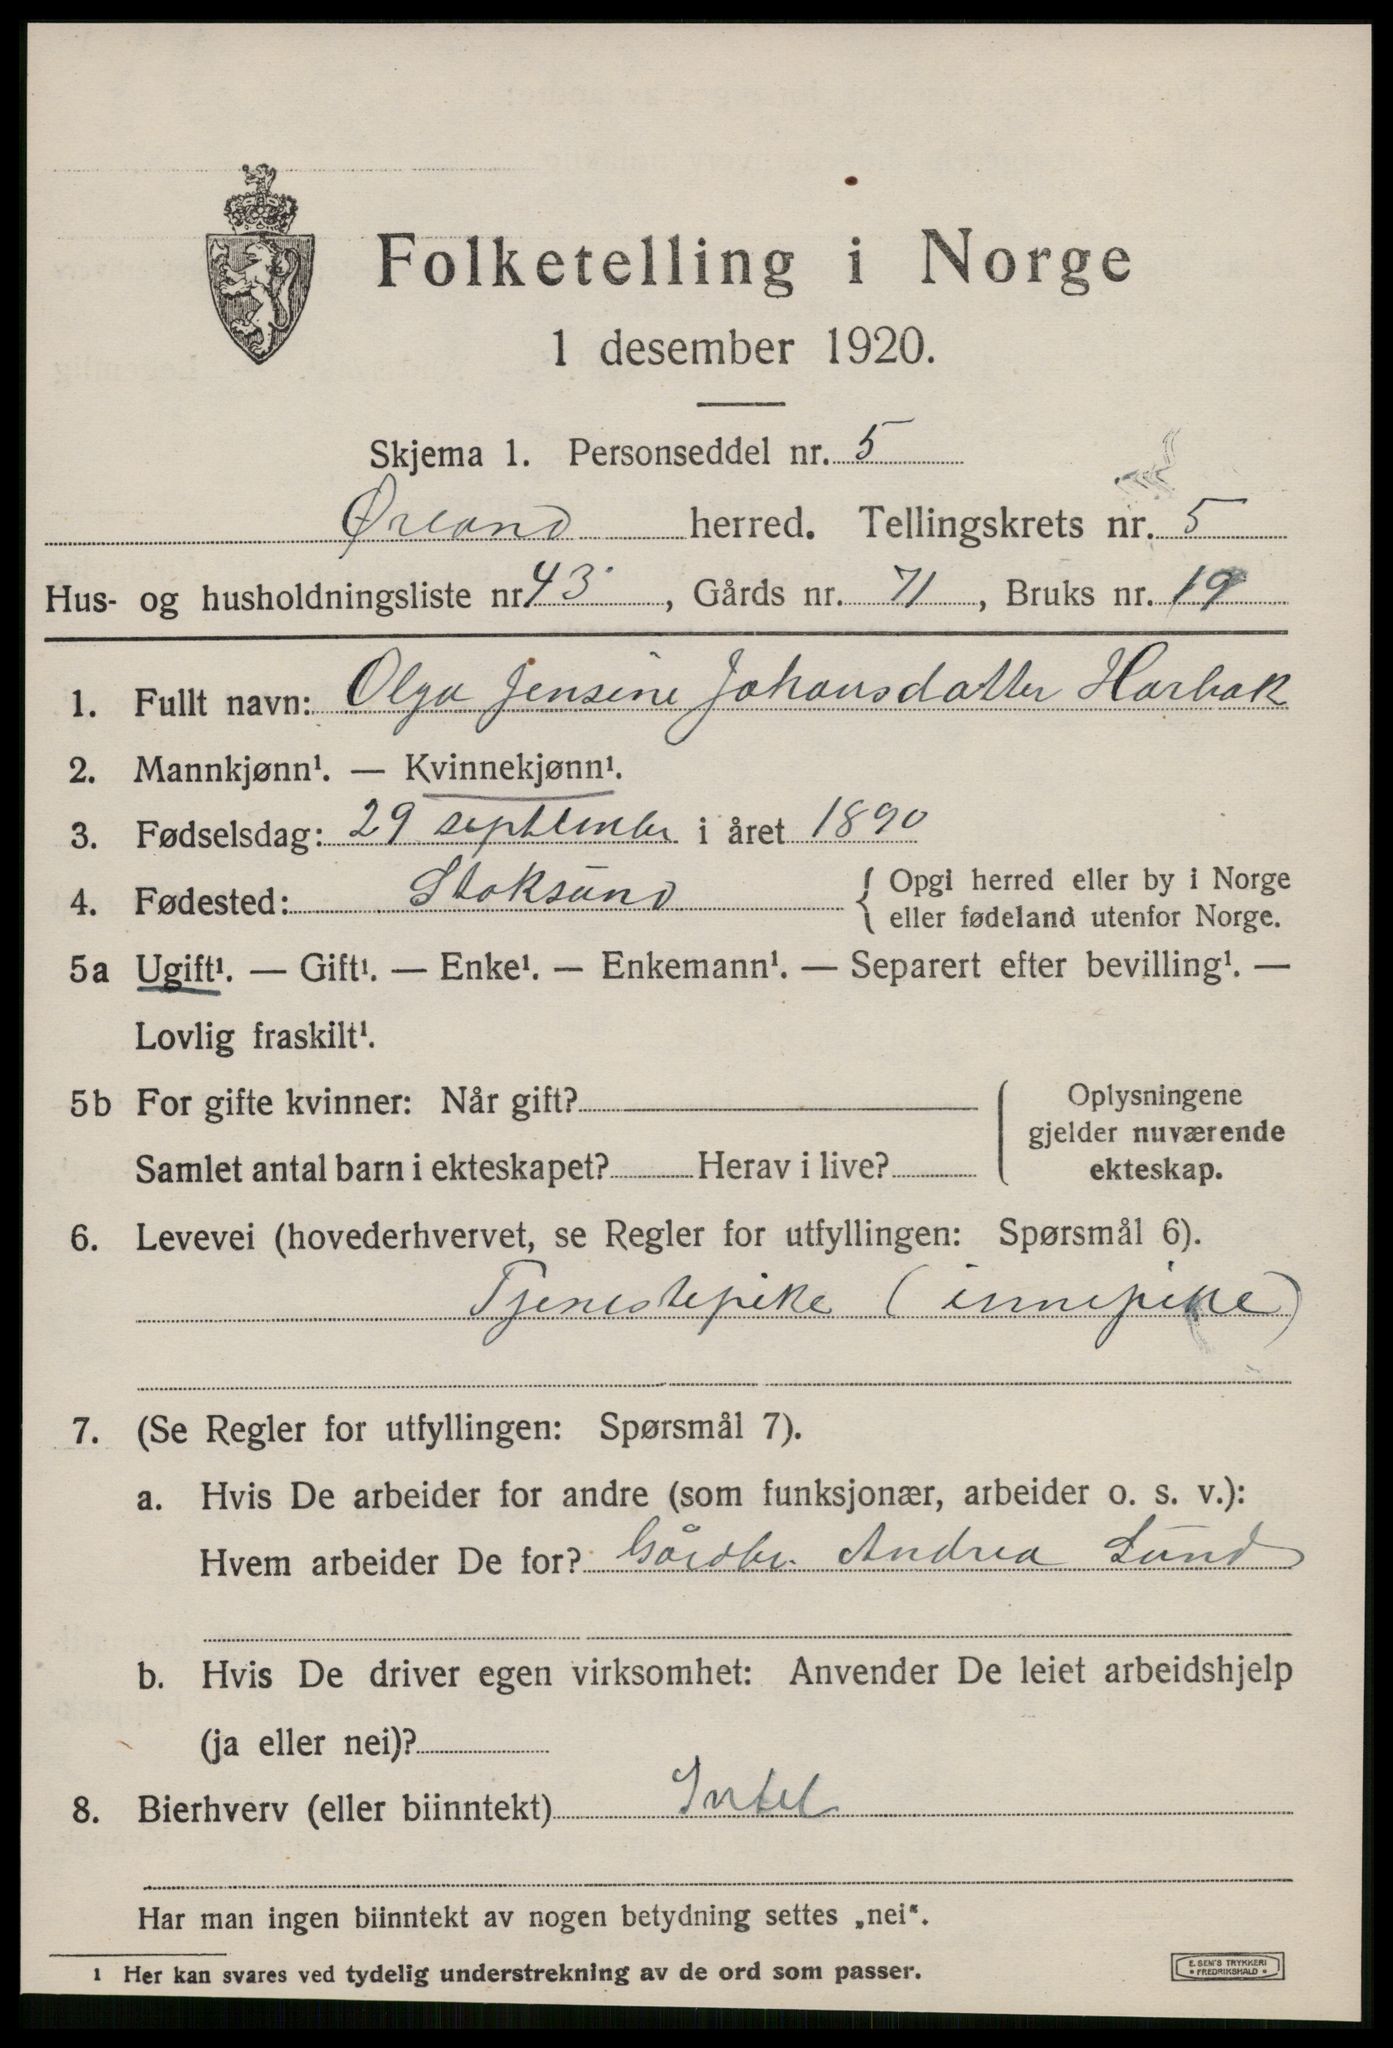 Folketelling i Norge
1 desember 1920.
Skjema 1. Personseddel nr. 5
Ørland herred. Tellingskrets nr. 5
Hus- og husholdningsliste nr. 43, Gårds nr. 71, Bruks nr. 19
1. Fullt navn: Olga Jensine Johansdatter Harbak
2. Mannkjønn¹. — Kvinnekjønn¹.
3. Fødselsdag: 29 september i året 1890
4. Fødested: Stoksund { Opgi herred eller by i Norge
eller fødeland utenfor Norge.
5a Ugift¹. — Gift¹. — Enke¹. — Enkemann¹. — Separert efter bevilling¹. —
Lovlig fraskilt¹.
5b For gifte kvinner: Når gift?
Samlet antal barn i ekteskapet? Herav i live?
Oplysningene
gjelder nuværende
ekteskap.
6. Levevei (hovederhvervet, se Regler for utfyllingen: Spørsmål 6).
Tjenestepike (innepike)
7. (Se Regler for utfyllingen: Spørsmål 7).
a. Hvis De arbeider for andre (som funksjonær, arbeider o. s. v.):
Hvem arbeider De for? Gårdbr. Andrea Lund
b. Hvis De driver egen virksomhet: Anvender De leiet arbeidshjelp
(ja eller nei)?
8. Bierhverv (eller biinntekt) Intet
Har man ingen biinntekt av nogen betydning settes „nei“.
1 Her kan svares ved tydelig understrekning av de ord som passer.
E. SEM'S TRYKKERI
• FREDRIKSHALD •